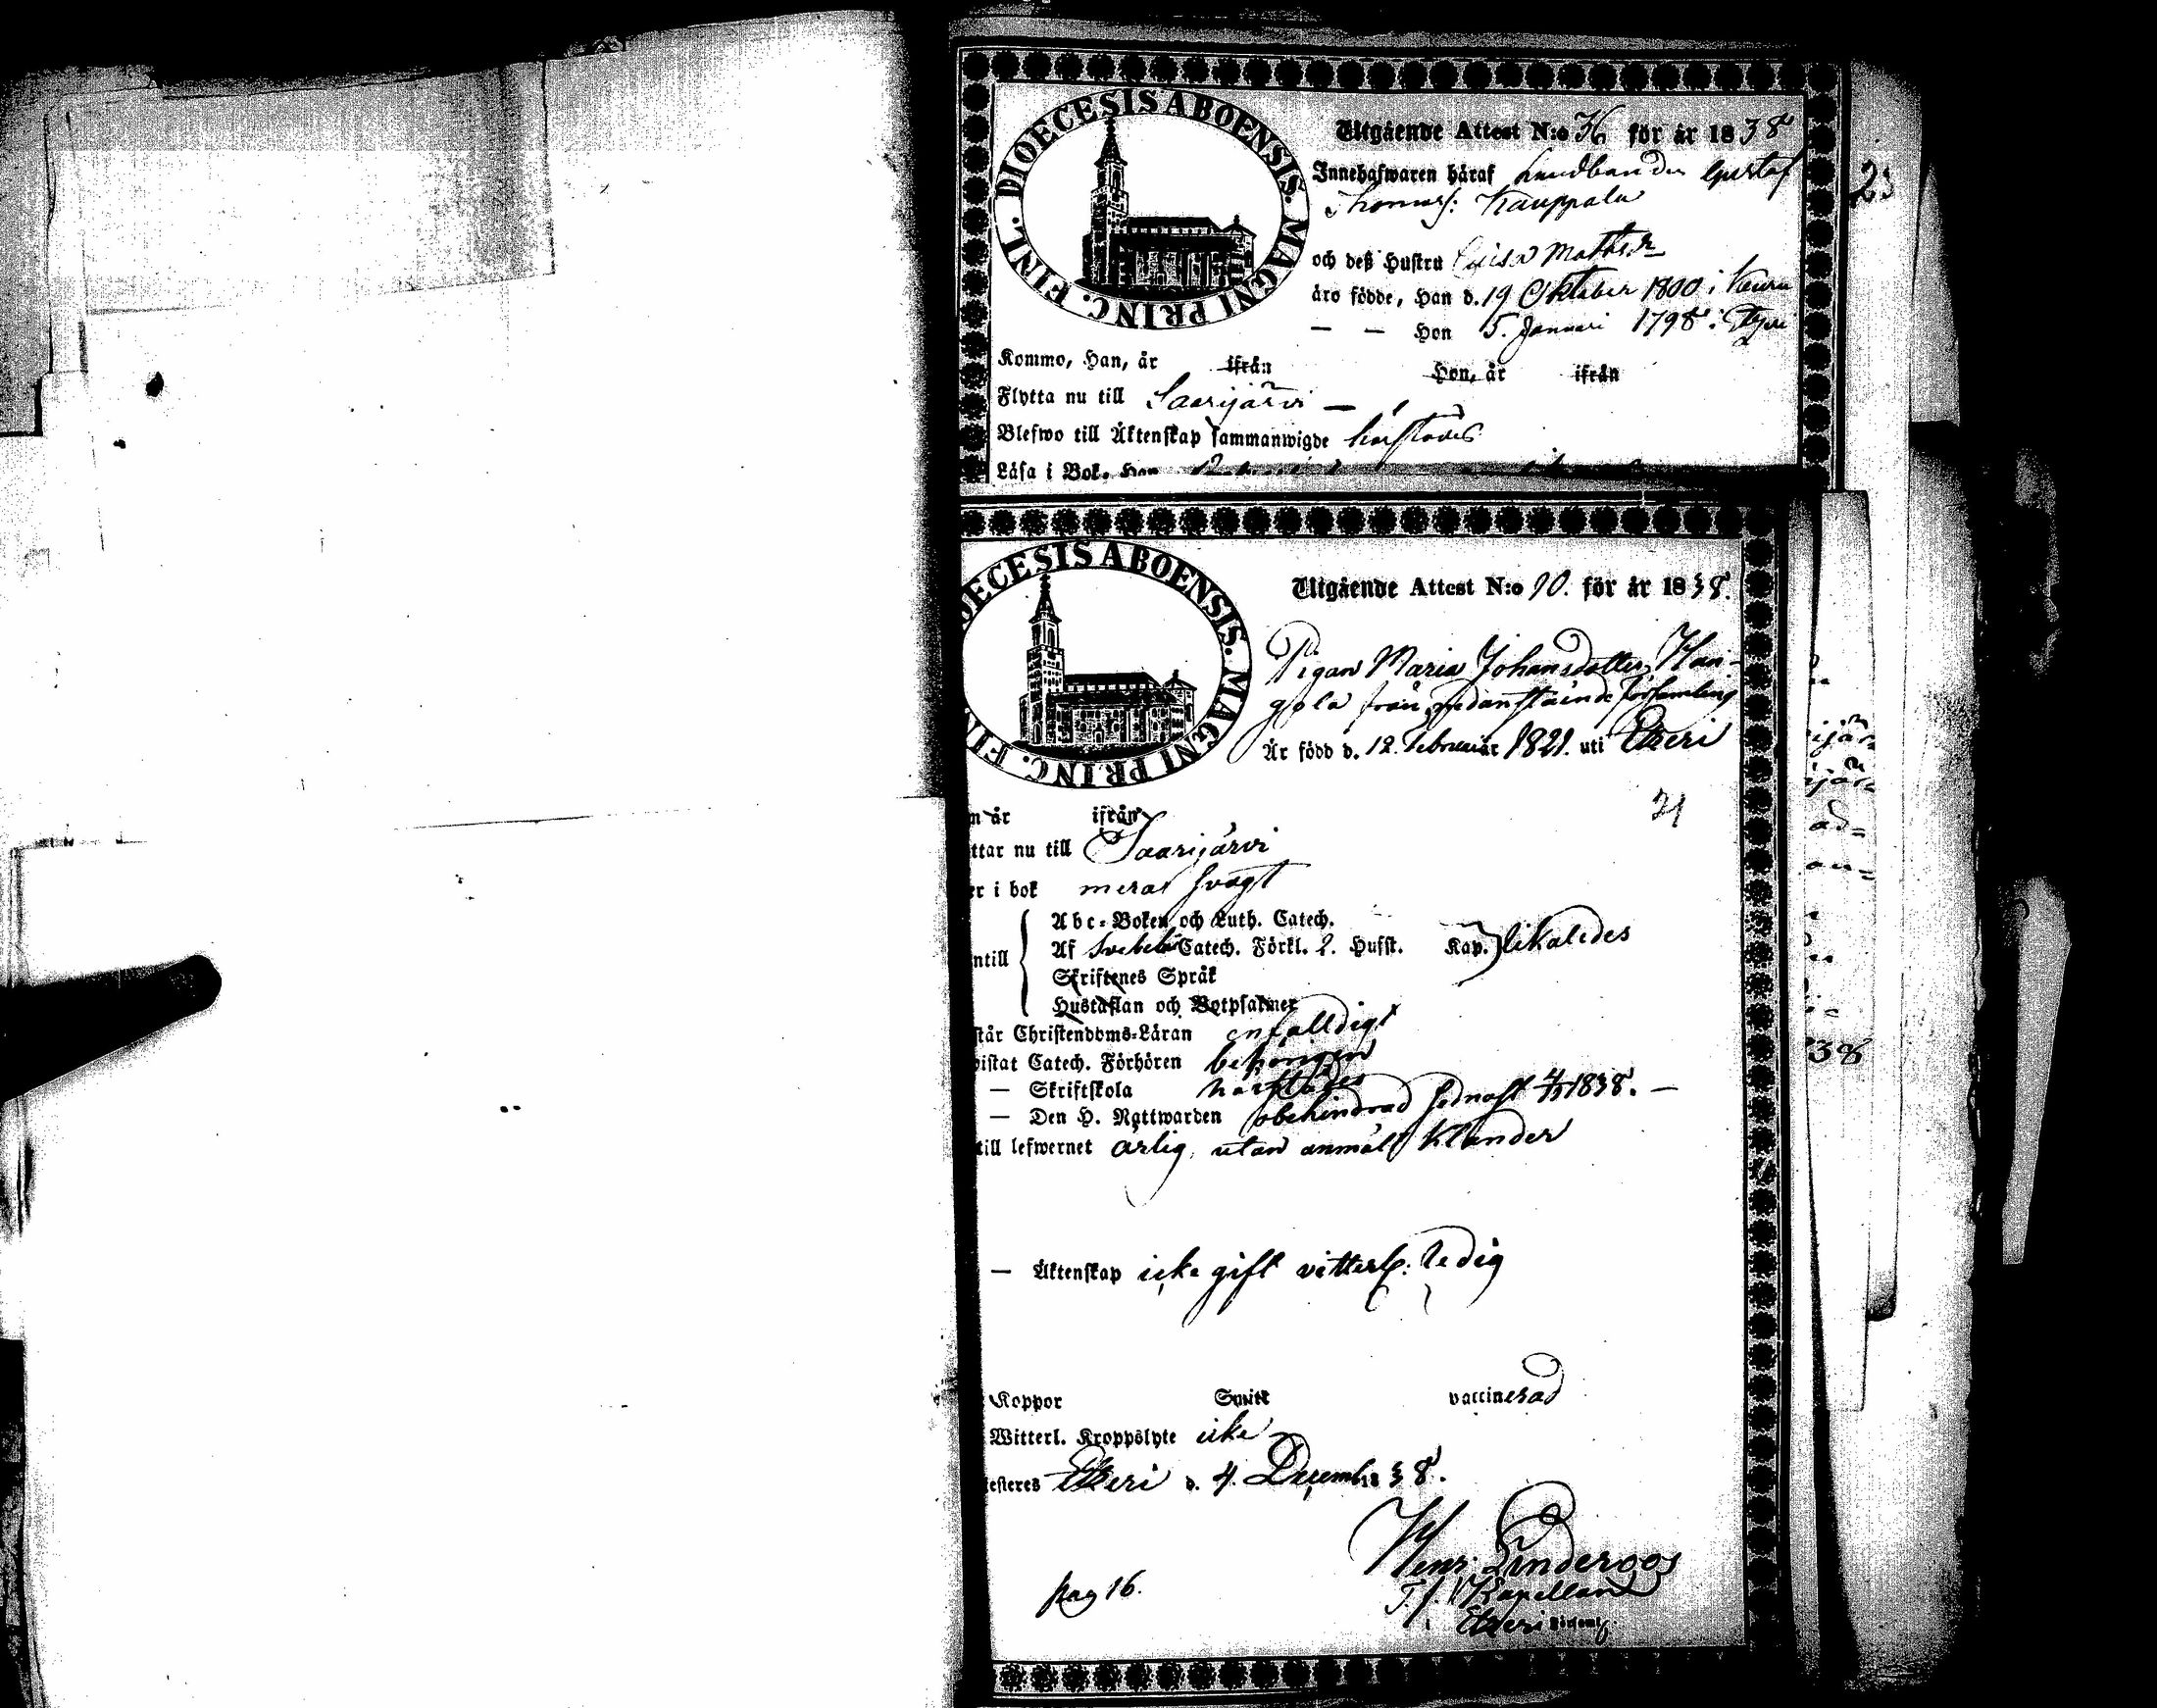 DIOECESIS ABOENSIS. MAGNI PRINC. FINL.
Utgående Attest N:o 36 för år 1838
Innehafwaren häraf Landbonden Gustaf
Thomas: Kauppala
och deß Hustru Caisa Matts
äro födde, Han d. 19 Oktober 1800 i Keuru
— — Hon 5. Januari 1798 i
Kommo, Han, år ifrån Hon, år ifrån
Flytta nu till Saarijärvi —
Blefwo till Äktenskap sammanwigde härstädes
Läsa i Bok. Han
23
OECESIS ABOENSIS. MAGNI PRINC. FIN
Utgående Attest N:o 90. för år 1838.
Pigan Maria Johansdotter Han-
gola från nedanstående församling
Är född d. 12. februari 1821. uti Etseri
21
m år ifrån
ttar nu till Saarijärvi
er i bok mera svagt
Abc-Boken och Luth. Catech.
ntill Af Svebeli Catech. Förkl. 2. Hufst. Kap. likaledes
Skriftenes Språk
Hustaflan och Botpsalmer
står Christendoms-Läran enfalldigt
wistat Catech. Förhören behörigen
— Skriftskola härstädes
— Den H. Nattwarden obehindrad sednast 4/11 1838. —
till lefwernet ärlig, utan anmält klander
— Äktenskap icke gift vitterl: ledig
Koppor Smitt vaccinerad
Witterl. Kroppslyte icke
testeres Etseri d. 4. Decemb. 1838.
Henr. Linderoos
T. f. Kapellan
Etseri
pag 16.
ijär-
ijär-
ad-
an-
38